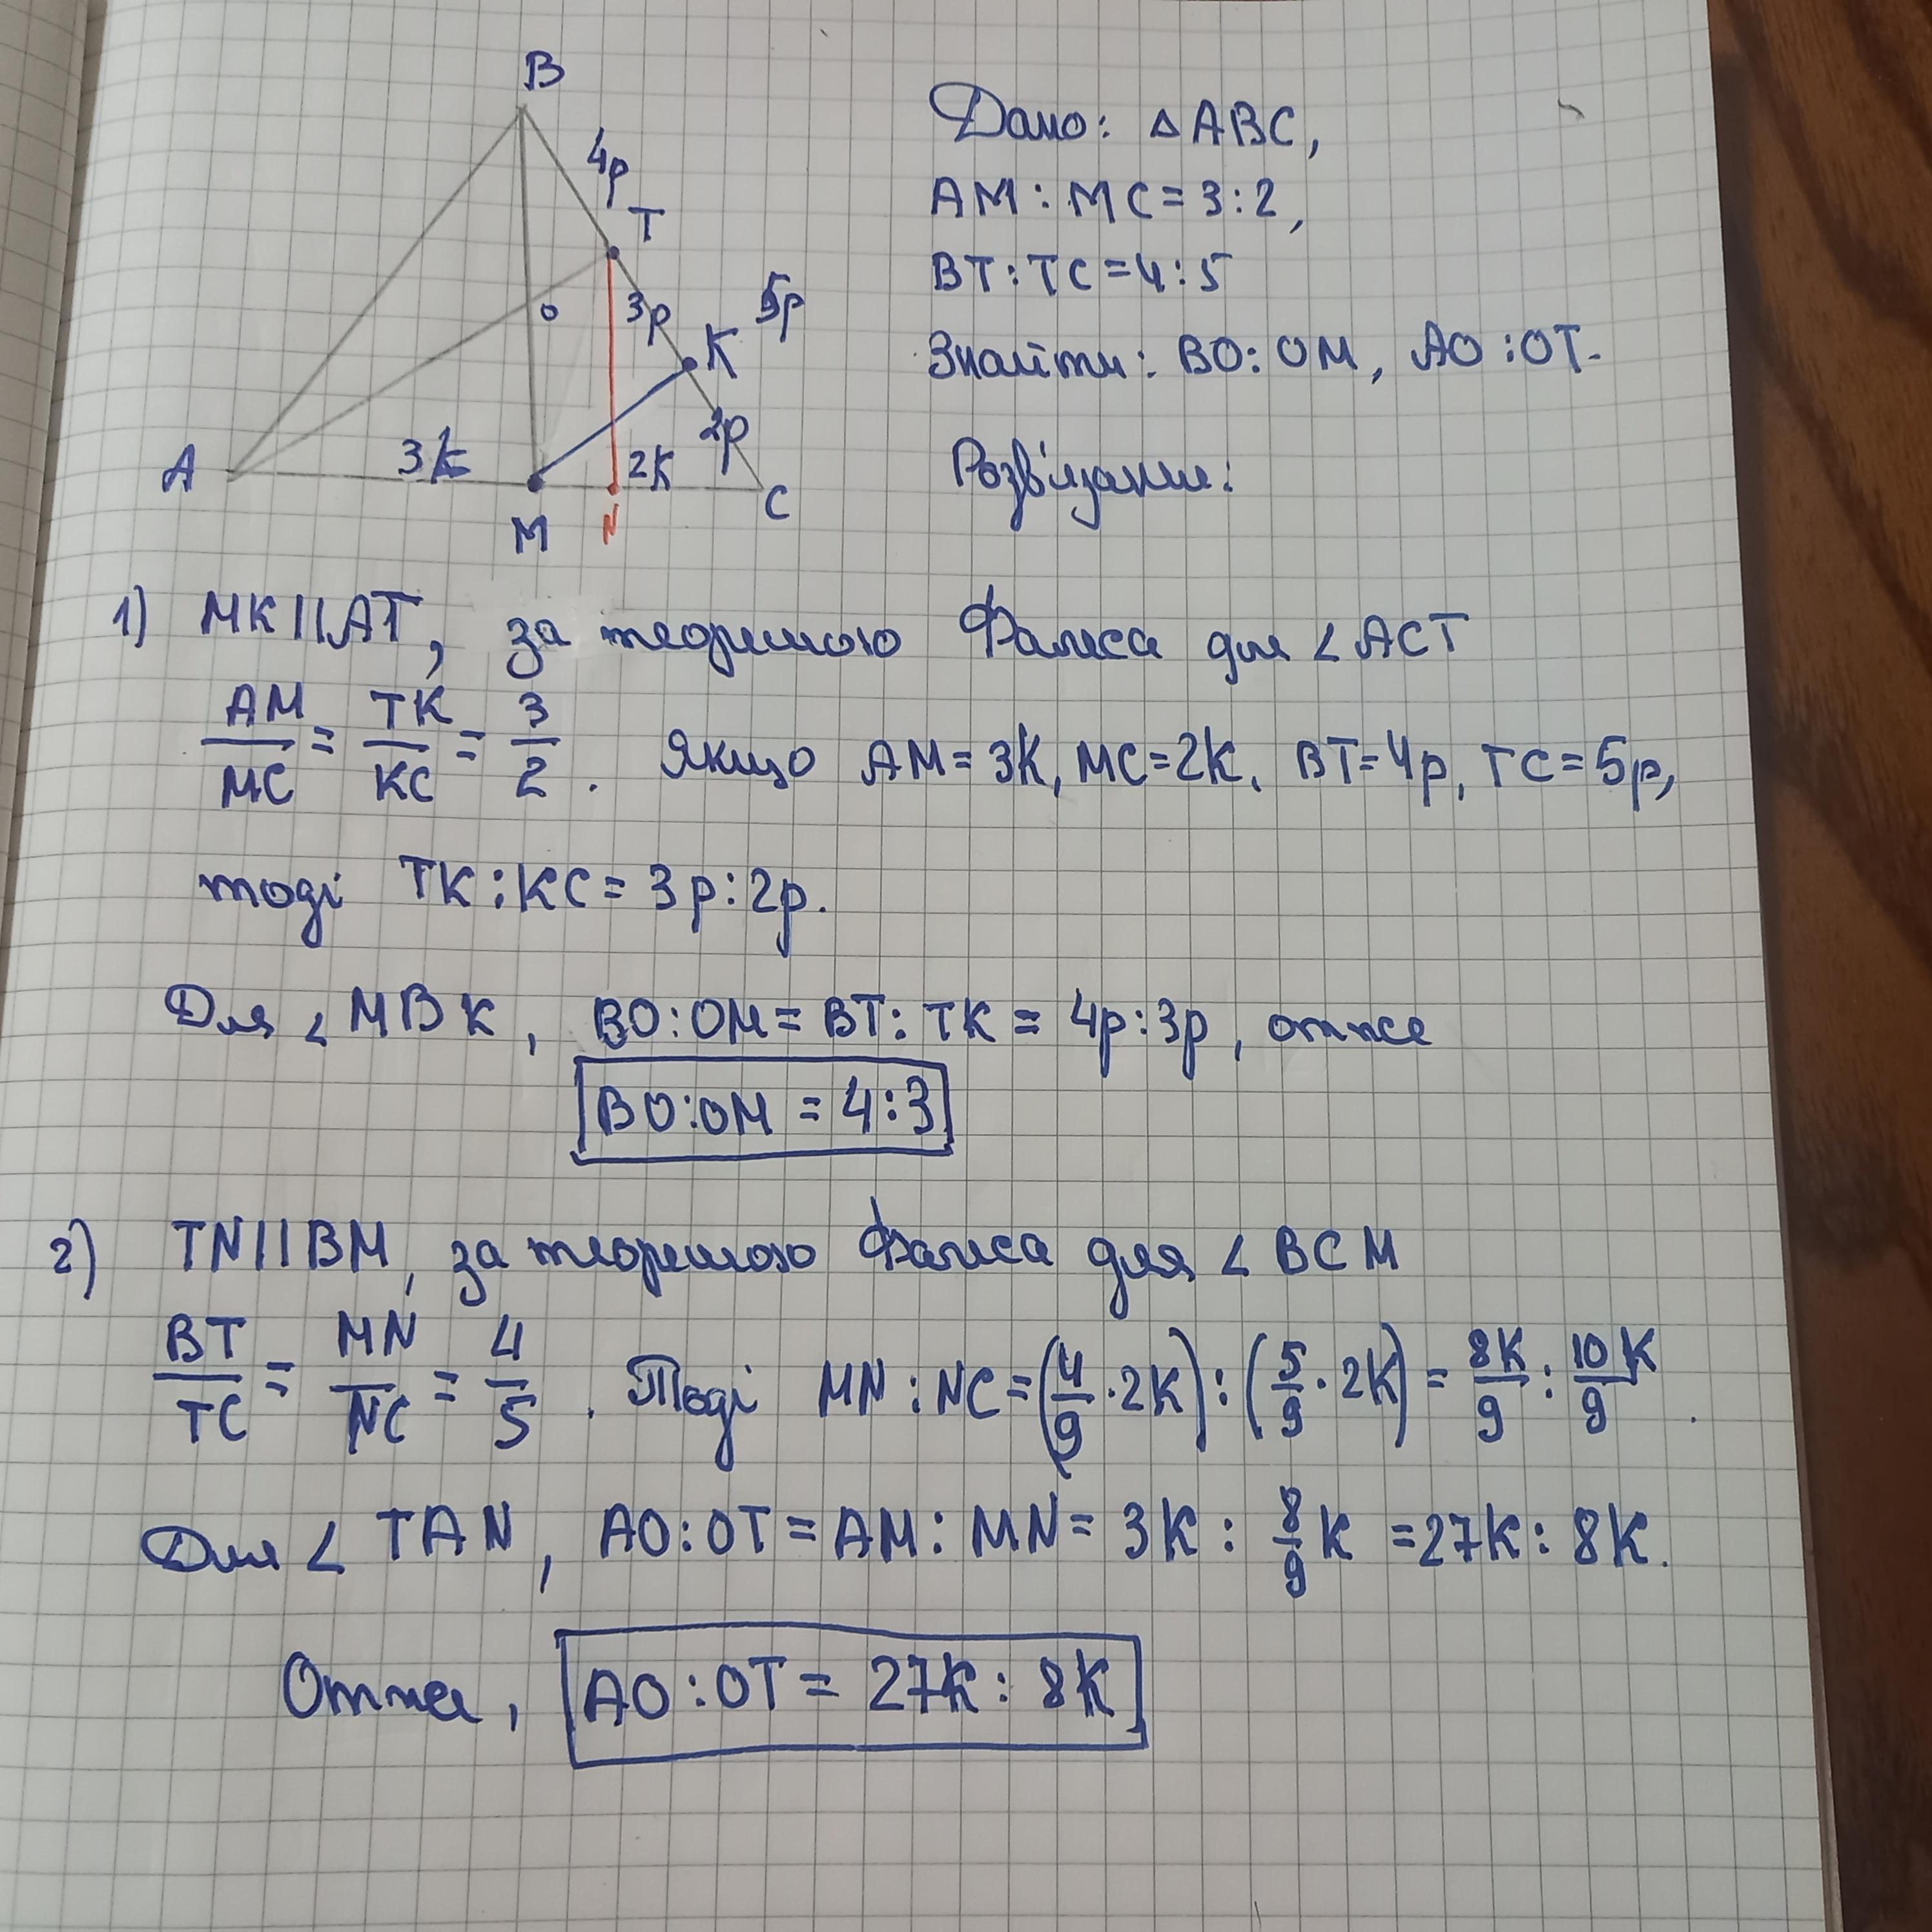 B
4p
T
o
3p
5p
K
2p
A
3k
2k
M
N
C
Дано: △ABC,
AM:MC=3:2,
BT:TC=4:5
Знайти: BO:OM, AO:OT.
Розв'язання:
1) MK||AT, за теоремою Фалеса для ∠ACT
AM/MC = TK/KC = 3/2. Якщо AM=3k, MC=2k, BT=4p, TC=5p,
тоді TK:KC=3p:2p.
Для ∠MBK, BO:OM=BT:TK=4p:3p, отже
BO:OM=4:3
2) TN||BM, за теоремою Фалеса для ∠BCM
BT/TC = MN/NC = 4/5. Тоді MN:NC=(4/9·2k):(5/9·2k)=8k/9:10k/9.
Для ∠TAN, AO:OT=AM:MN=3k:8/9k=27k:8k.
Отже, AO:OT=27k:8k